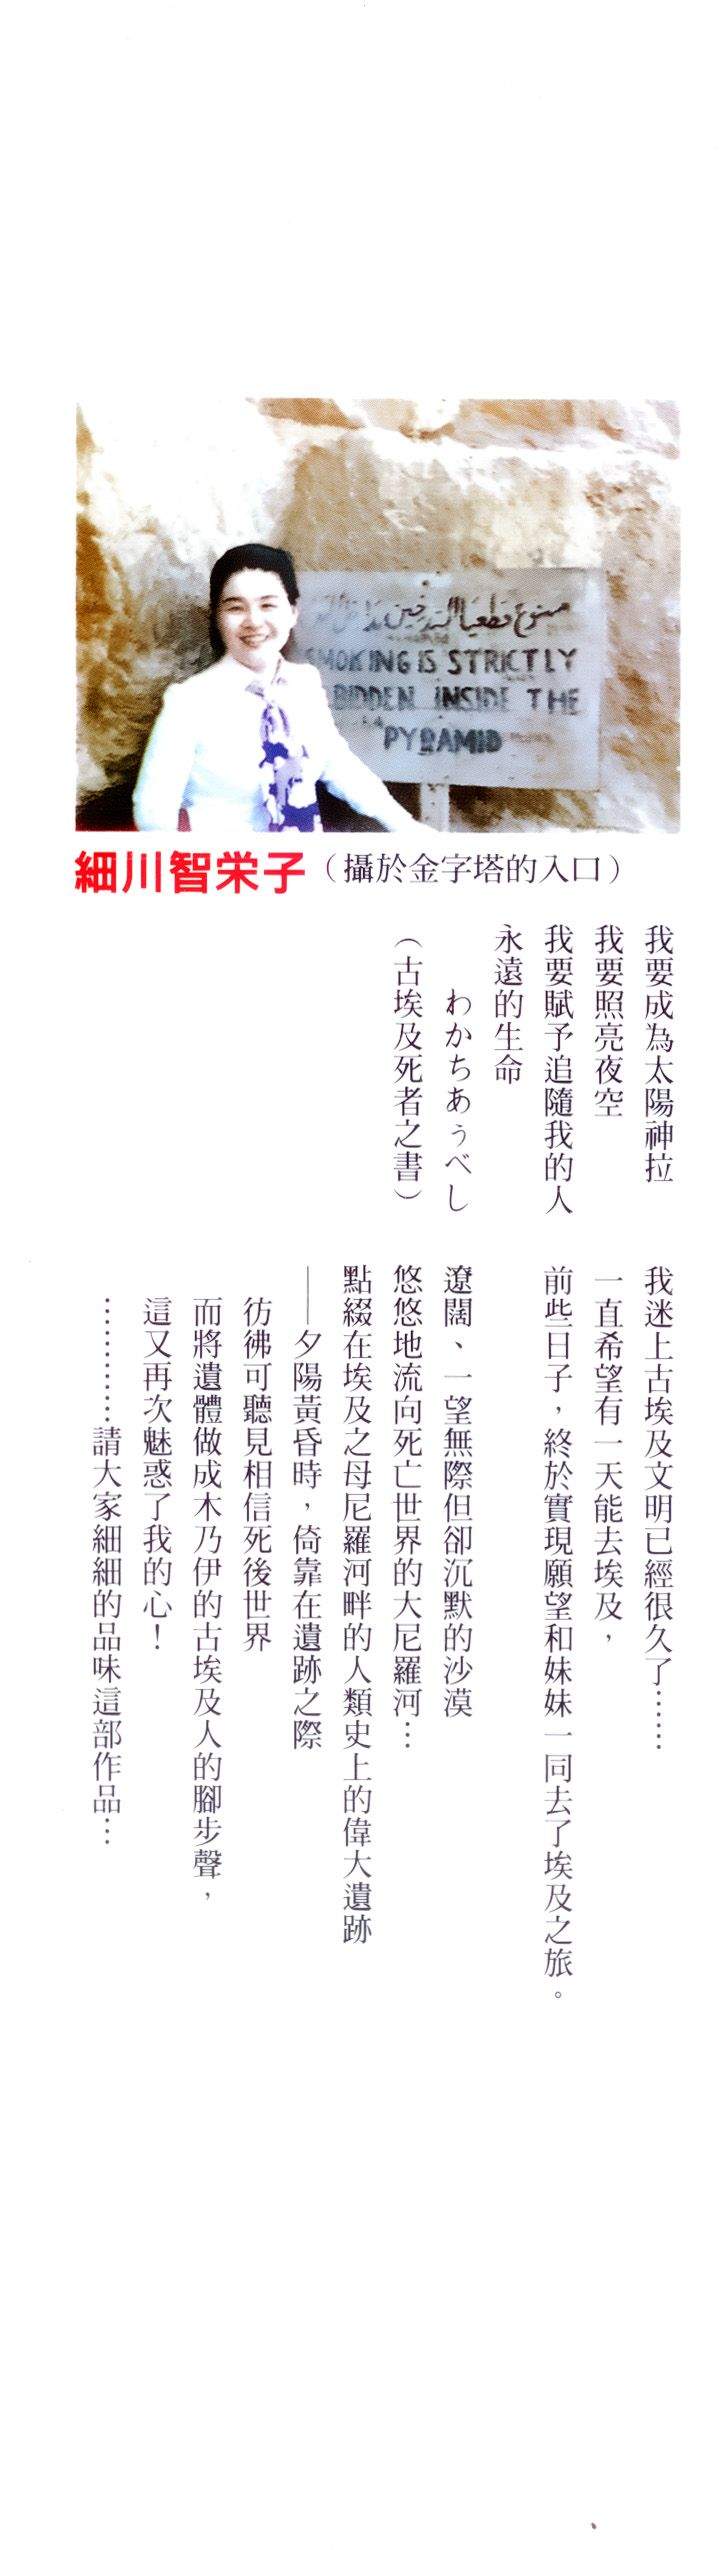 ممنوع قطعيا التدخين
SMOKING IS STRICTLY
BIDDEN INSIDE THE
PYRAMID
細川智栄子（攝於金字塔的入口）
我要成為太陽神拉
我要照亮夜空
我要賦予追隨我的人
永遠的生命
わかちあぅべし
（古埃及死者之書）
我迷上古埃及文明已經很久了……
一直希望有一天能去埃及，
前些日子，終於實現願望和妹妹一同去了埃及之旅。
遼闊、一望無際但卻沉默的沙漠
悠悠地流向死亡世界的大尼羅河…
點綴在埃及之母尼羅河畔的人類史上的偉大遺跡
——夕陽黃昏時，倚靠在遺跡之際
彷彿可聽見相信死後世界
而將遺體做成木乃伊的古埃及人的腳步聲，
這又再次魅惑了我的心！
…………請大家細細的品味這部作品…